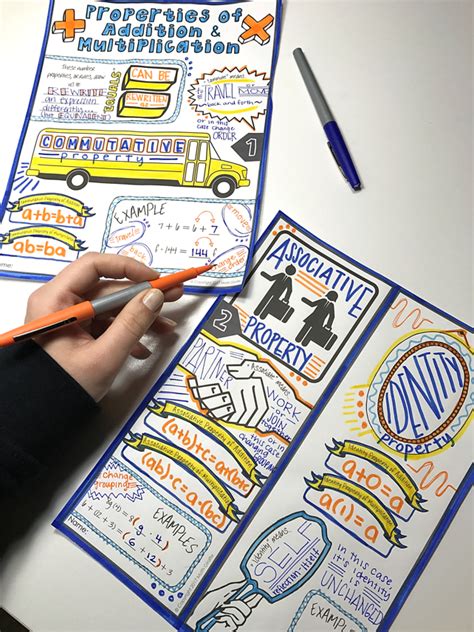 Properties of
Addition &
Multiplication
These number
properties, or rules, allow
us to
REWRITE
an expression
differently...
but EQUIVALENT!
EQUALS
CAN BE
REWRITTEN
"commute" means
to TRAVEL or MOVE
back and forth
or in this
case change
ORDER
COMMUTATIVE
property
1
Commutative Property of Addition
a+b=b+a
Commutative Property of Multiplication
ab=ba
EXAMPLE
7+6=6+7
f·144=144·f
travel
back
change
order
ASSOCIATIVE
PROPERTY
2
PARTNER
"Associate" means
WORK
or JOIN
together
or in this case
changing
Associative Property of Addition
(a+b)+c=a+(b+c)
Associative Property of Multiplication
(ab)·c=a·(bc)
change
grouping
EXAMPLES
6+(32+3)
(6+32)+3
Name:
IDENTITY
property
Identity Property of Addition
a+0=a
Identity Property of Multiplication
a(1)=a
"identity" means
SELF
reflection-itself
in this
case
it's identity
is
UNCHANGED
EXAMPLE
Name: